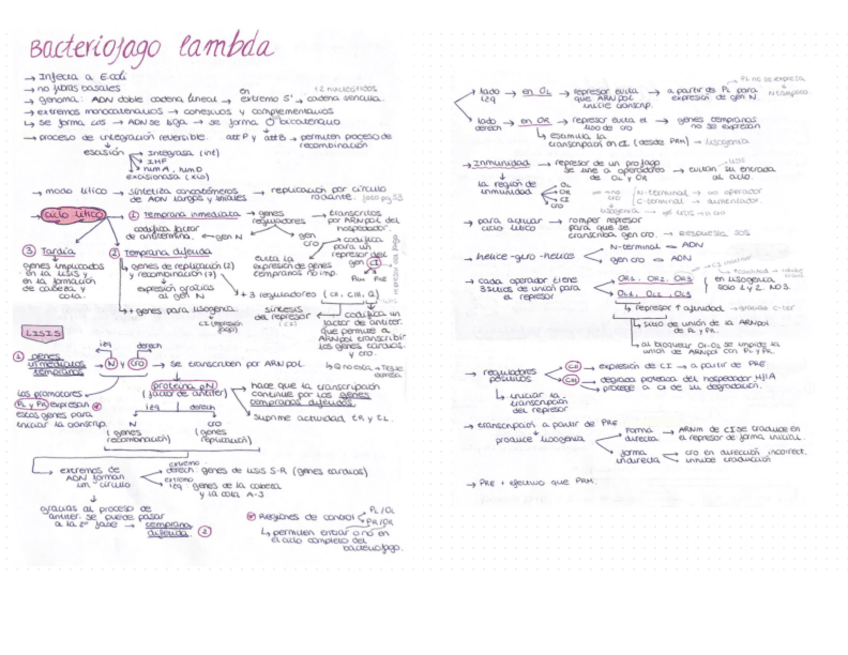 Bacteriofago lambda
→ Infecta a E.coli
→ no fibras basales
→ genoma: ADN doble cadena lineal → en extremo 5' → cadena sencilla.
12 nucleótidos
→ extremos monocatenarios → cohesivos y complementarios
↳ se forma cos → ADN se liga → se forma O bicatenario
→ proceso de integración reversible. att P y att B → permiten proceso de recombinación
escisión
Integrasa (int)
IHF
→ modo lítico → sintetiza concatómeros de ADN largos y lineales → replicación por círculo rodante.
→ ciclo lítico
① temprana inmediata → genes reguladores → transcritos por ARNpol del hospedador.
codifica factor de antitermina. ← gen N
gen cro → codifica para un represor del gen CI
evita la expresión de genes tempranos no imp.
PRM PRE
③ Tardía
genes implicados en la lisis y en la formación de cabeza y cola.
② Temprana diferida
↳ genes de replicación (2) y recombinación (7)
expresión gracias al gen N
↳ + genes para lisogenia
+ 3 reguladores (CI, CIII, Q)
síntesis del represor (CI)
codifica un factor de antiter. que permite a ARNpol transcribir los genes tardíos y cro.
LISIS
① genes inmediatos tempranos
izq derech
→ N y cro → se transcriben por ARN pol.
los promotores PL y PR expresan estos genes para iniciar la transcrip.
proteína pN (factor de antiter)
hace que la transcripción continúe por los genes tempranos diferidos.
suprime actividad tR y tL.
izq derech
N (genes recombinación)
cro (genes replicación)
→ extremos de ADN forman un círculo
extremo derech: genes de lisis S-R (genes tardíos)
extremo izq: genes de la cabeza y la cola A-J
gracias al proceso de antiter. se puede pasar a la 2ª fase → temprana diferida. ②
Regiones de control
PL/OL
PR/OR
↳ permiten entrar o no en el ciclo completo del bacteriófago.
lado izq → en OL → represor evita que ARNpol inicie transcrip. → a partir de PL para expresión de gen N.
PL no se expresa
lado derech → en OR → represor evita el uso de cro → genes tempranos no se expresan
↳ estimula la transcripción en CI (desde PRM) → lisogenia
→ Inmunidad → represor de un profago se une a operadores de OL y OR → evitan su entrada al ciclo.
la región de inmunidad
OL
OR
CI
cro
N-terminal → un operador
C-terminal →
→ para activar ciclo lítico → romper represor para que se transcriba gen cro. → respuesta SOS
→ hélice-giro-hélice
N-terminal → ADN
gen cro → ADN
→ cada operador tiene 3 sitios de unión para el represor
OR1, OR2, OR3
OL1, OL2, OL3
en lisogenia solo 1 y 2. NO 3.
↳ represor ↑ afinidad
↳ sitio de unión de la ARNpol de PL y PR.
al bloquear O1-O2 se impide la unión de ARNpol con PL y PR.
→ reguladores positivos
CII → expresión de CI → a partir de PRE
CIII → degrada proteasa del hospedador HflA
→ protege a CII de su degradación.
↳ iniciar la transcripción del represor
→ transcripción a partir de PRE
produce lisogenia
Forma directa → ARNm de CI se traduce en el represor de forma inicial.
forma indirecta → cro en dirección incorrect. inhibe traducción
→ PRE + efectivo que PRM.